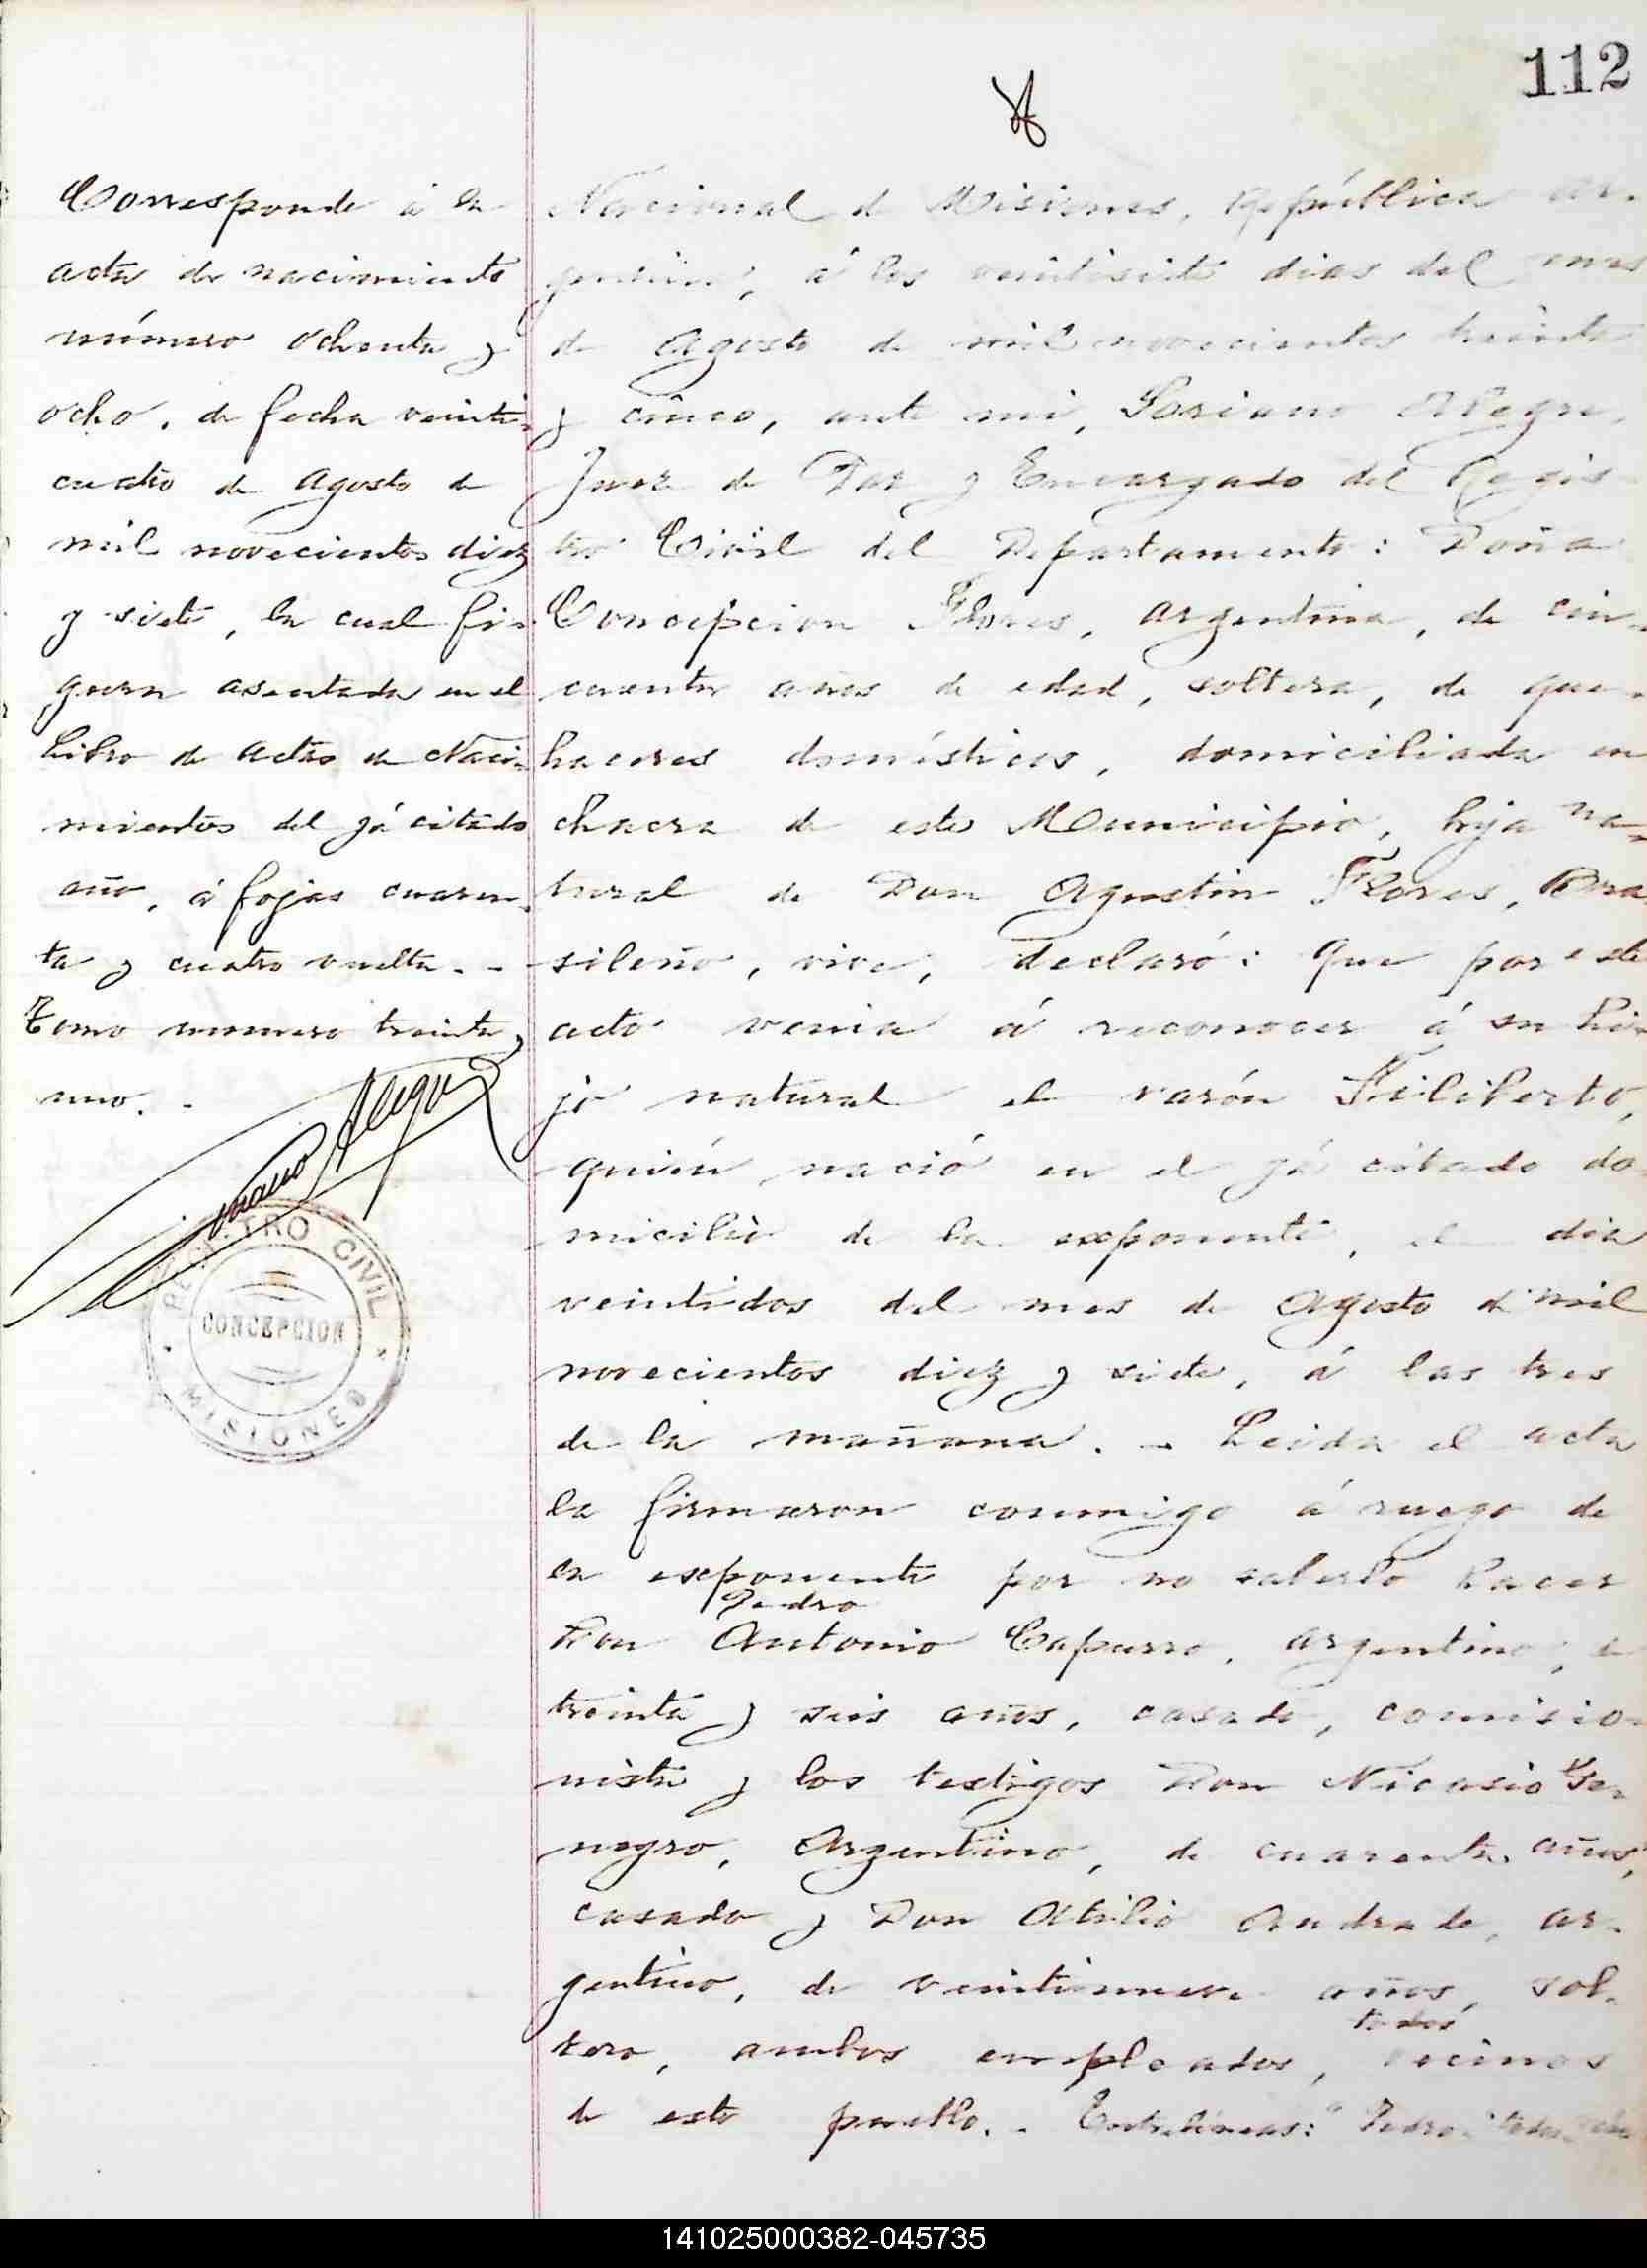 112
Corresponde á la
acta de nacimiento
número ochenta y
ocho, de fecha veinti-
cuatro de Agosto de
mil novecientos diez
y siete, la cual fi-
gura asentada en el
Libro de Actas de Naci-
mientos del yá citado
año, á fojas cuaren-
ta y cuatro vuelta. -
Tomo número treinta y
uno. -
Soriano Alegre
REGISTRO CIVIL
CONCEPCION
MISIONES
Nacional de Misiones, República Ar-
gentina, á los veintisiete dias del mes
de Agosto de mil novecientos treinta
y cinco, ante mi, Soriano Alegre,
Juez de Paz y Encargado del Regis-
tro Civil del Departamento: Doña
Concepcion Flores, argentina, de cin-
cuenta años de edad, soltera, de que-
haceres domésticos, domiciliada en
chacra de este Municipio, hija na-
tural de Don Agustin Flores, Bra-
sileño, vive, declaró: Que por este
acto venia á reconocer á su hi-
jo natural el varón Filiberto,
quién nació en el yá citado do
micilio de la exponente, el dia
veintidos del mes de Agosto de mil
novecientos diez y siete, á las tres
de la mañana. - Leida el acta
la firmaron conmigo á ruego de
la exponente por no saberlo hacer
Pedro
Don Antonio Capurro, argentino, de
treinta y seis años, casado, comisio-
nista y los testigos Don Nicasio Se-
negro, Argentino, de cuarenta años,
casado y Don Atilio Andrade, ar-
gentino, de veintinueve años, sol-
todos
tero, ambos empleados, vecinos
de este pueblo. - Entrelíneas: "Pedro" "todos"
141025000382-045735